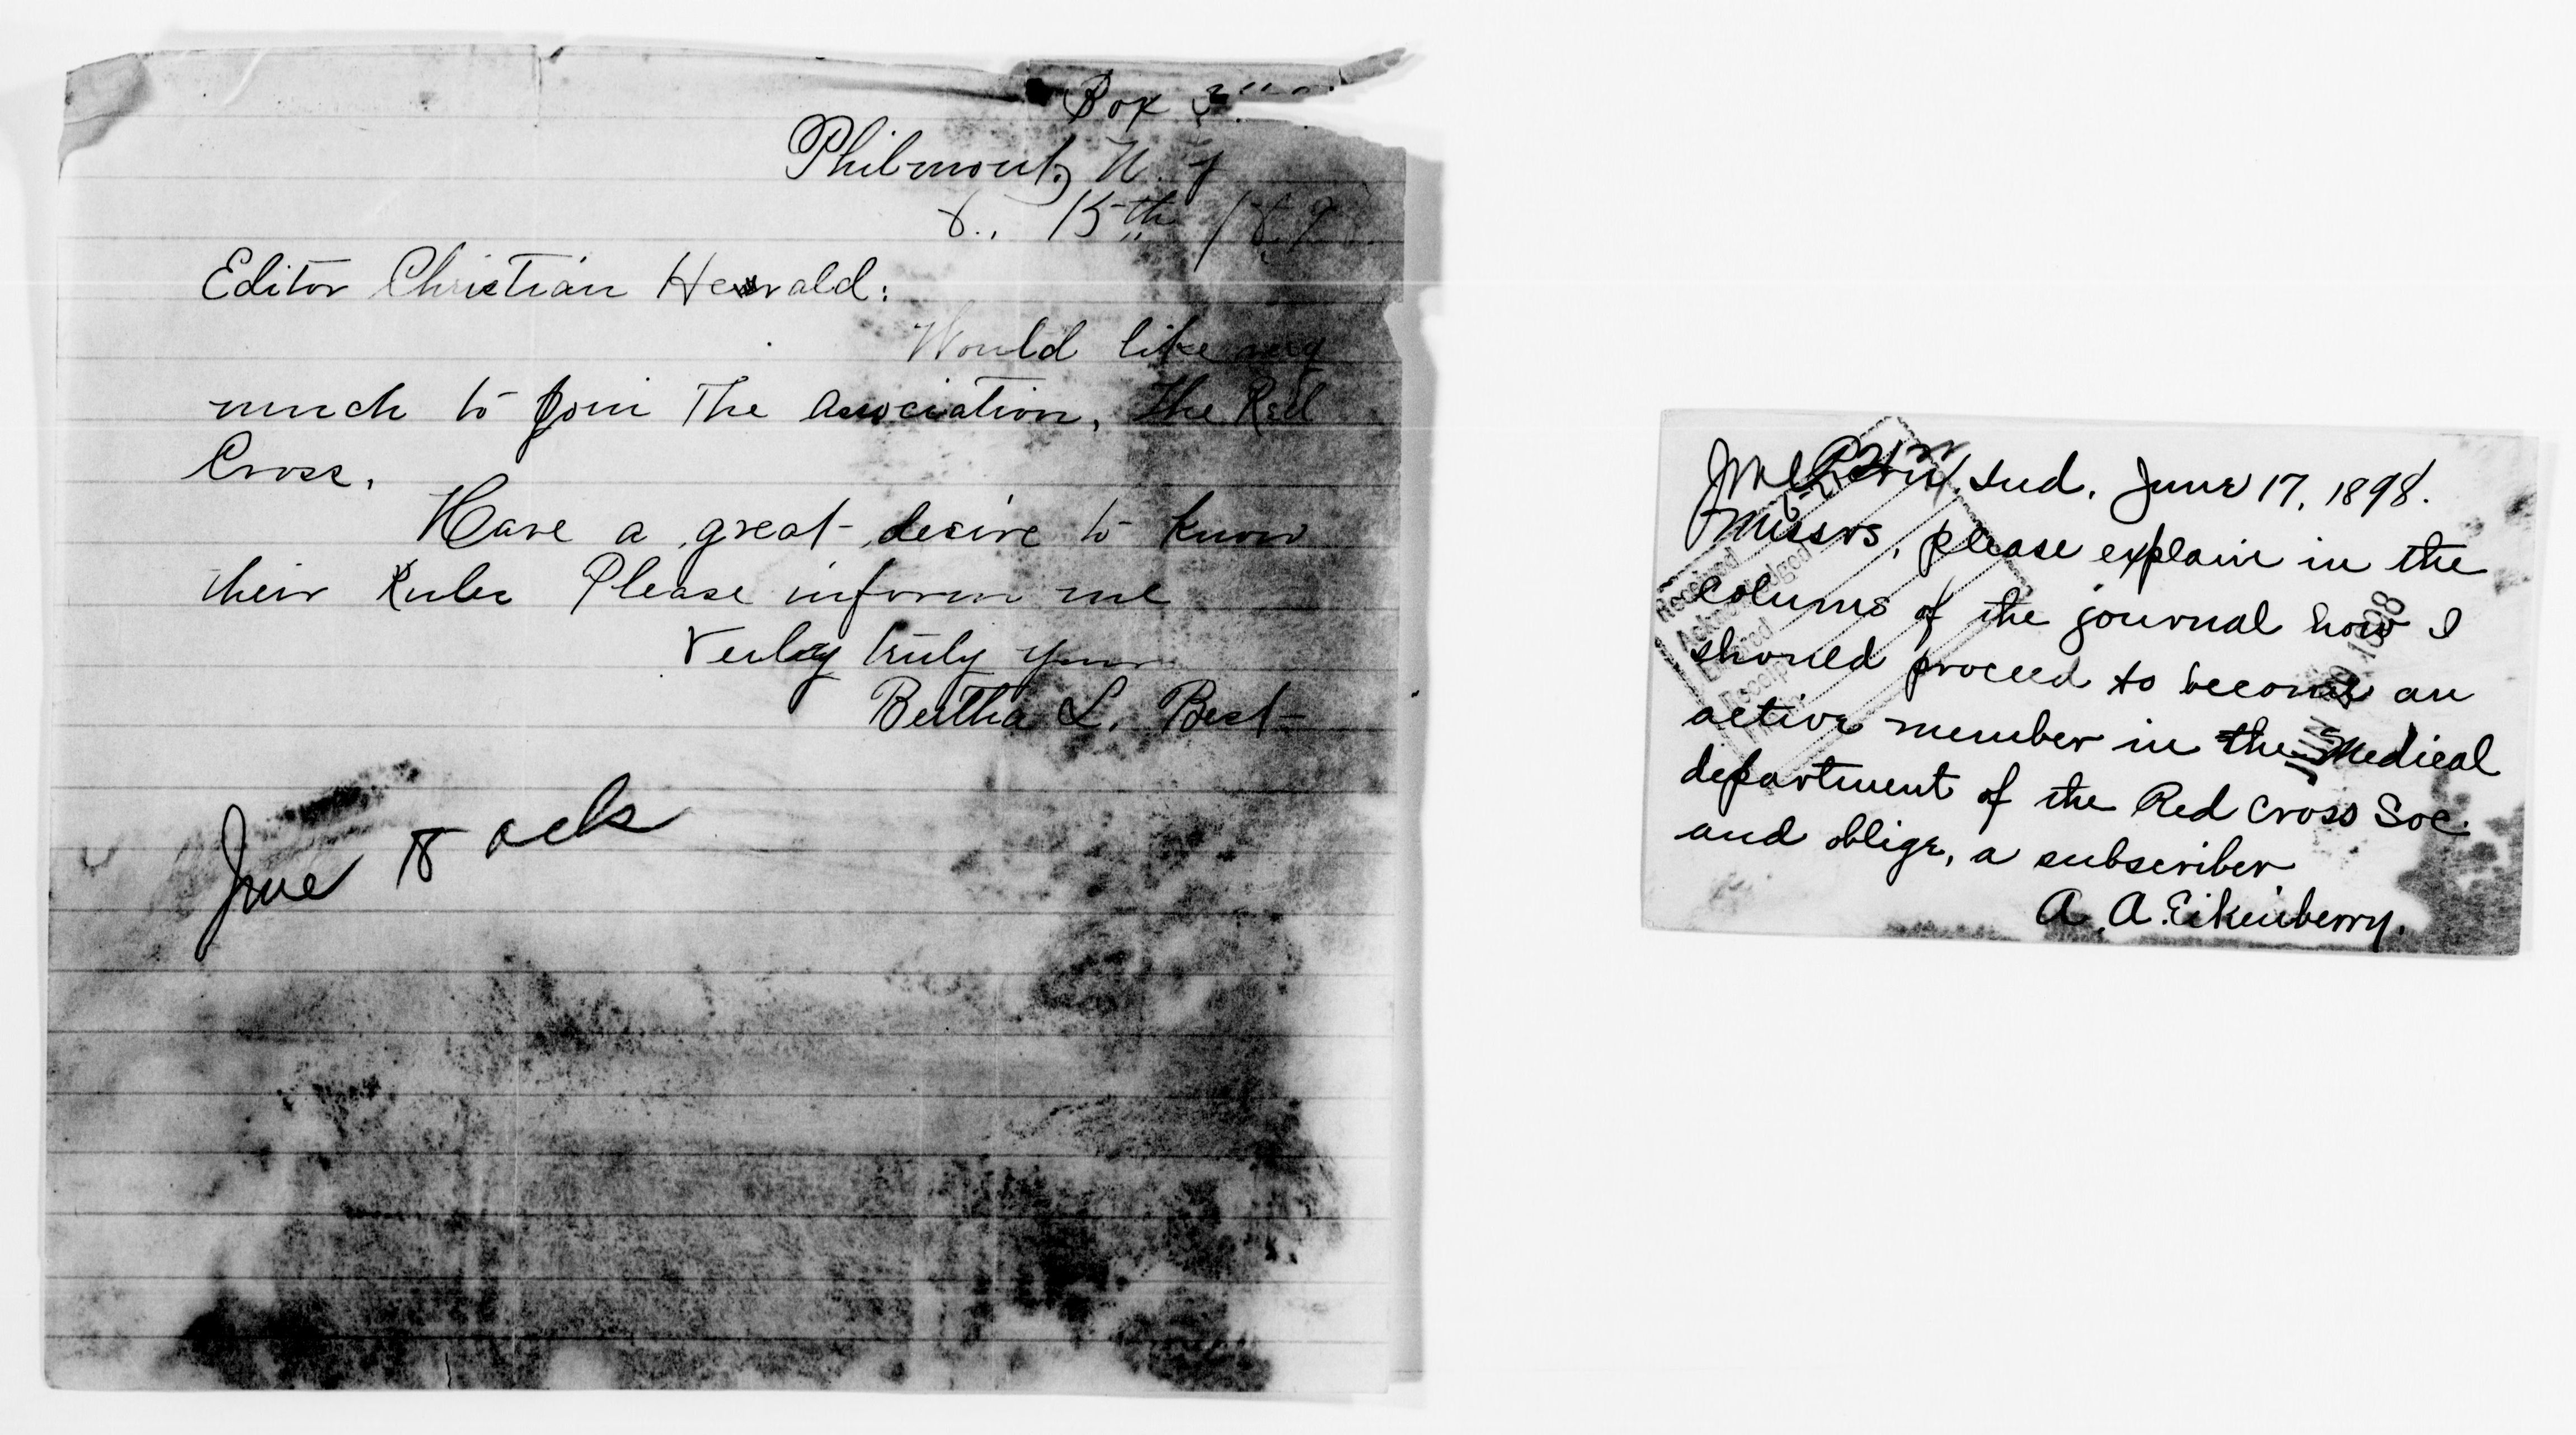 Box
Philmont, N. Y
6.. 15th 189
Editor Christian Herald:
Would like very
much to join The Association, the Red
Cross.
Have a great desire to know
their Rules Please inform me
Verly truly yours
Bertha L. Best
June 18 ack
Ind. June 17, 1898.
Missrs, please explain in the
colums of the journal how I
should proceed to become an
active member in the Medical
department of the Red Cross Soc.
and oblige, a subscriber
A. A. Eikenberry.
Received
Acknowledged
Entered
Receipt
File
JUN 1898